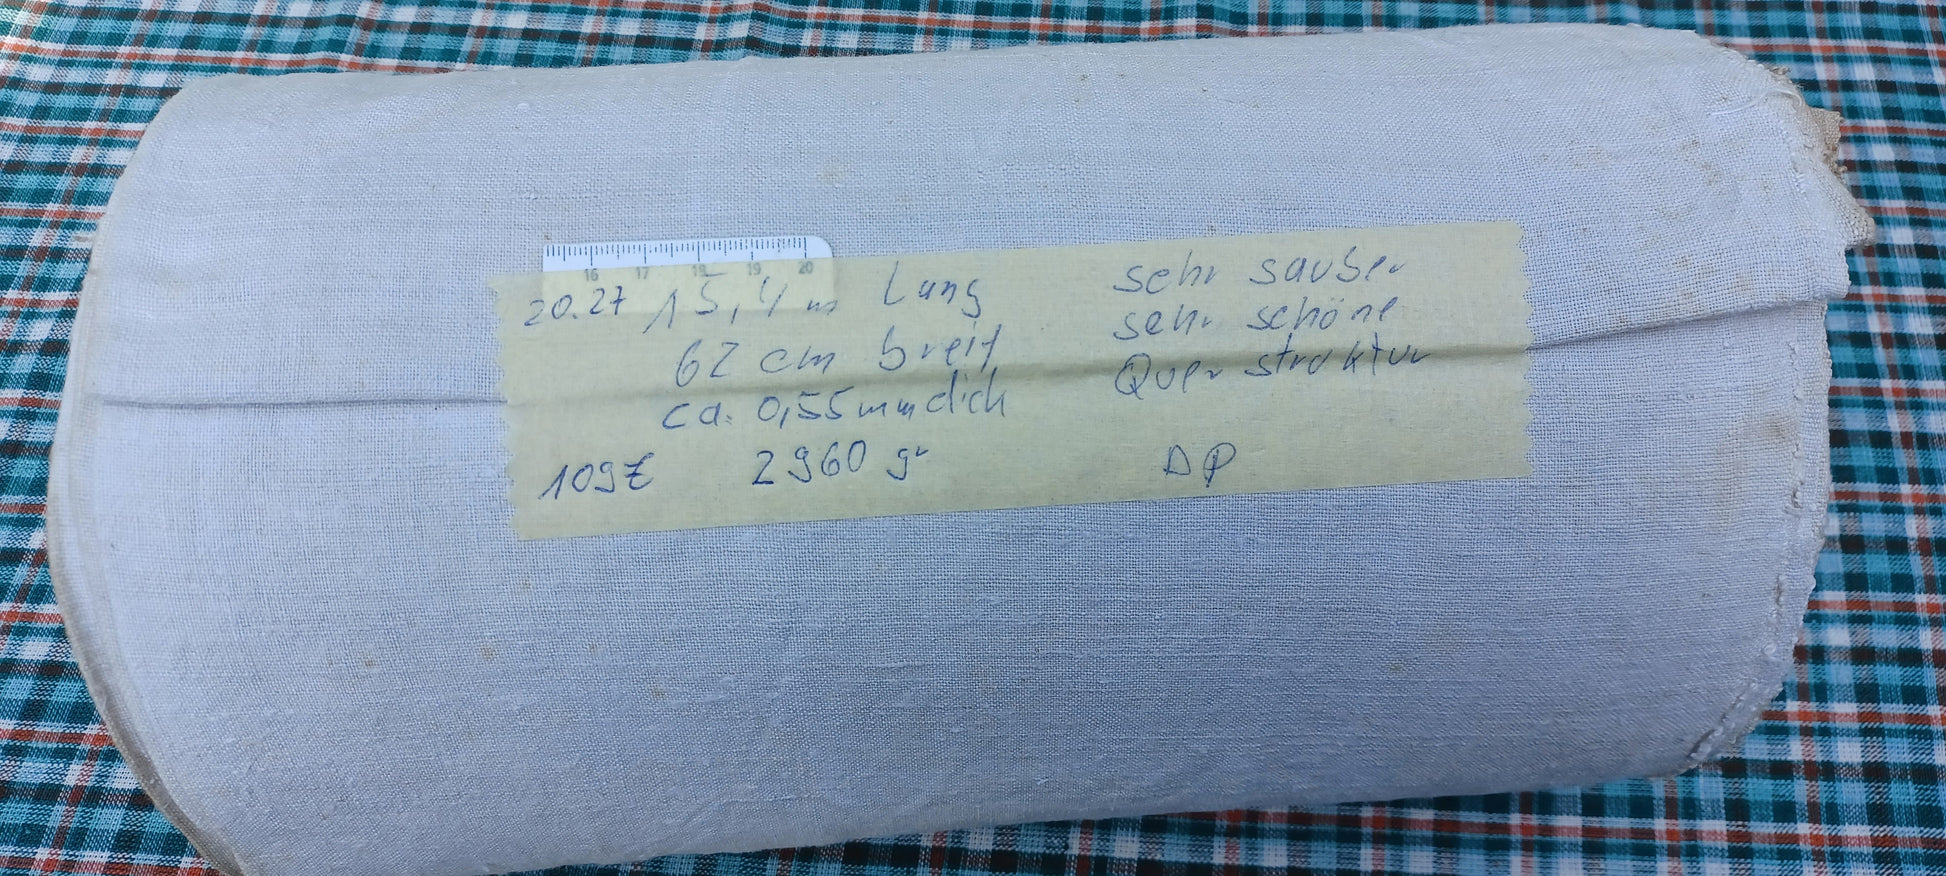 16 17 18 19 20
20.27 15,4 m Lang
62 cm breit
ca. 0,55 mm dick
109€ 2960 gr
sehr sauber
sehr schöne
Quer struktur
DP